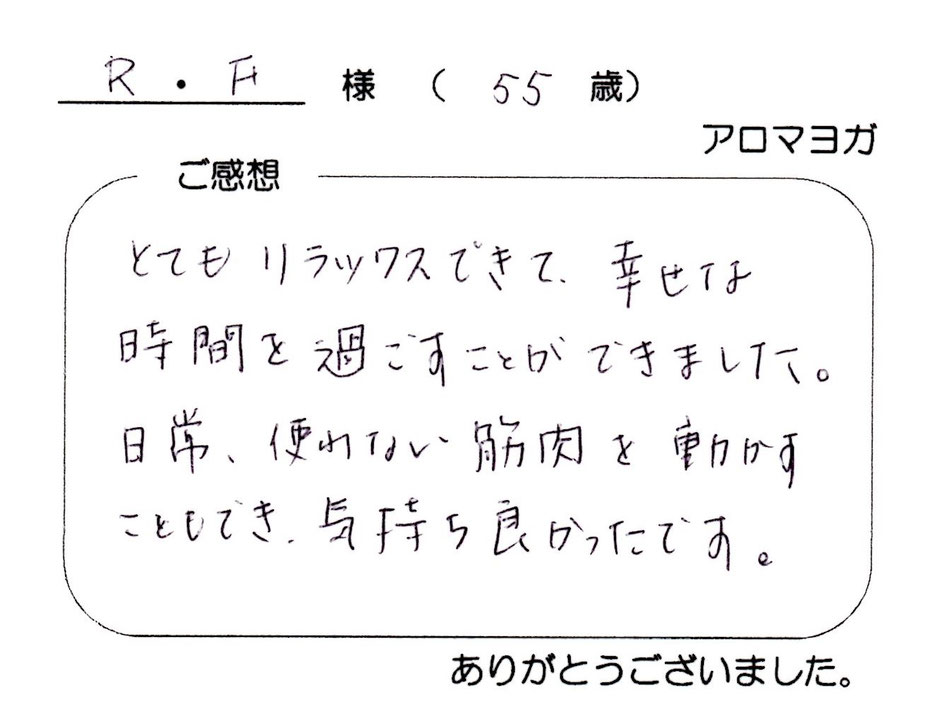 R・F 様 ( 55 歳)
アロマヨガ
ご感想
とてもリラックスできて、幸せな
時間を過ごすことができました。
日常、使れない筋肉を動かす
こともでき、気持ち良かったです。
ありがとうございました。